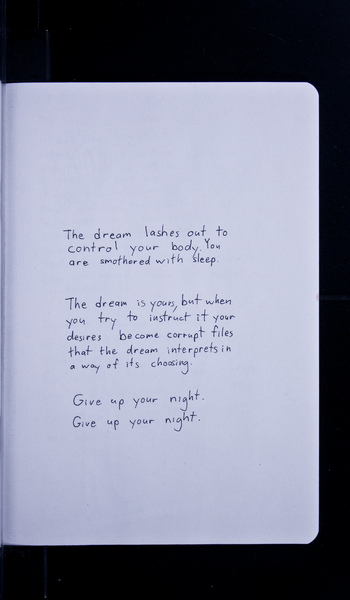 The dream lashes out to
control your body. You
are smothered with sleep.
The dream is yours, but when
you try to instruct it your
desires become corrupt files
that the dream interprets in
a way of its choosing.
Give up your night.
Give up your night.